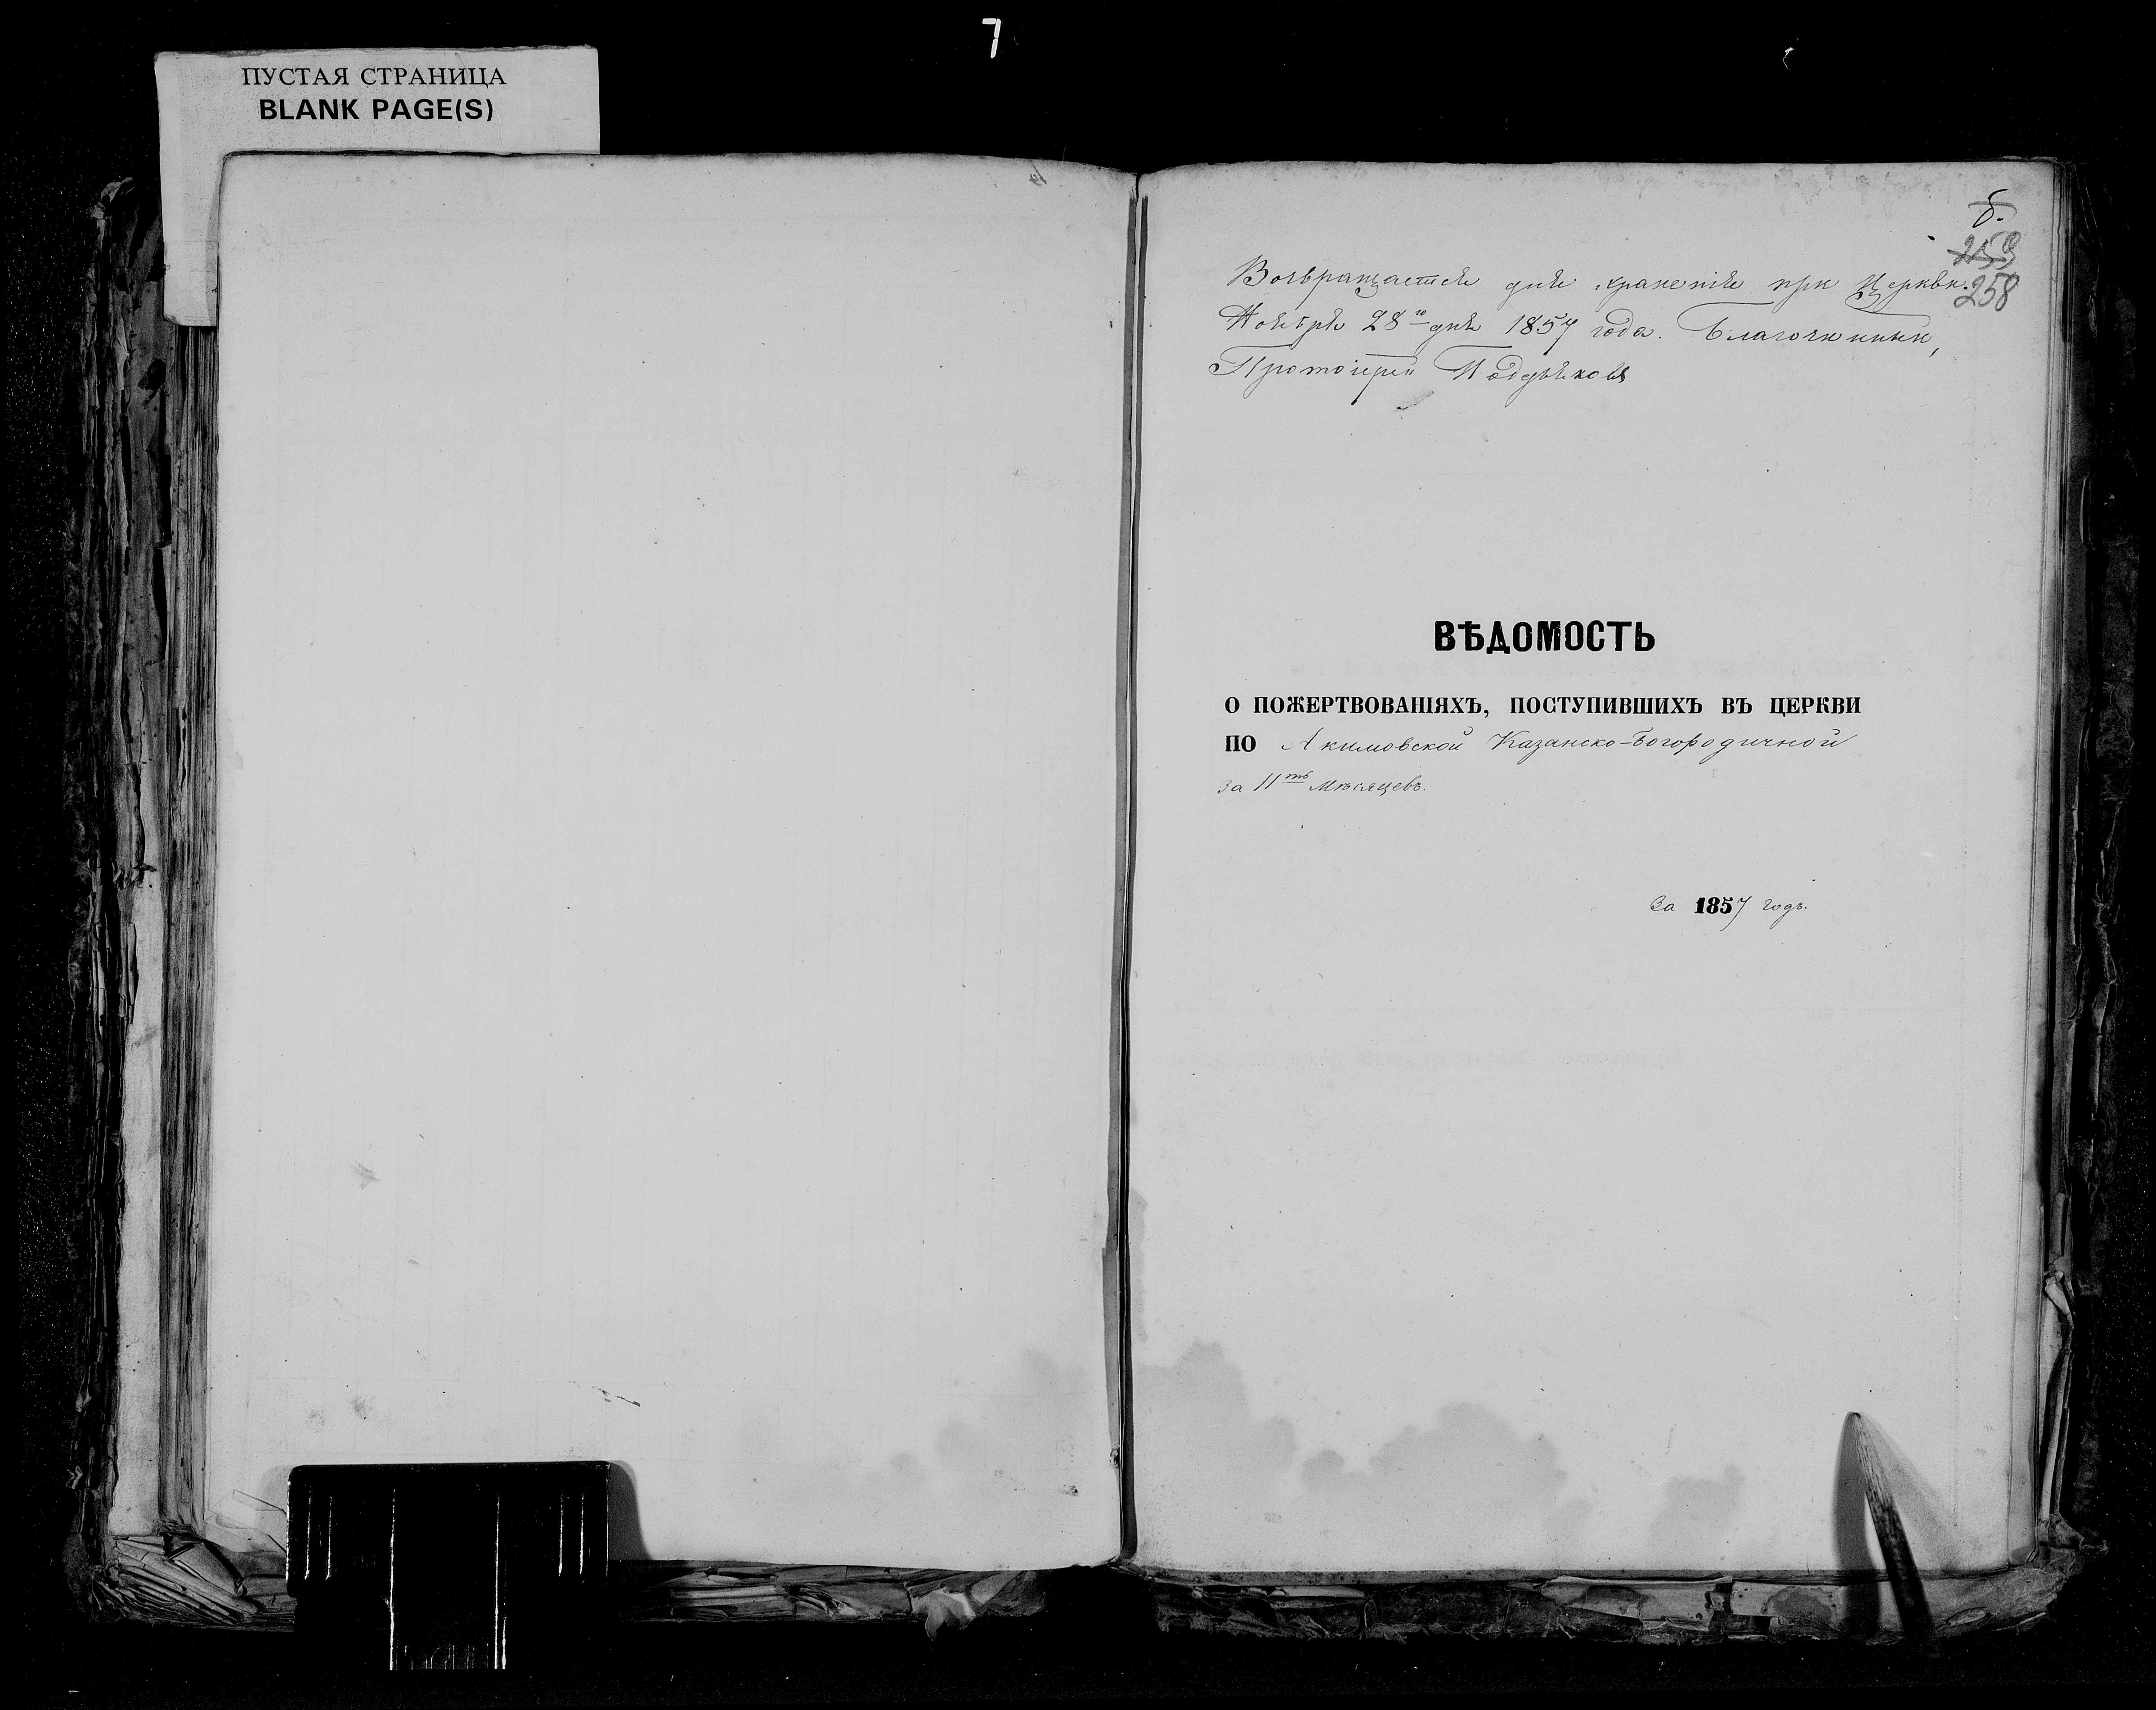 7
ПУСТАЯ СТРАНИЦА
BLANK PAGE(S)
258
Возвращается для храненія при Церкви.
Ноября 28го дня 1857 года. Благочинный,
Протоіерей Поддьяковъ
ВѢДОМОСТЬ
О ПОЖЕРТВОВАНІЯХЪ, ПОСТУПИВШИХЪ ВЪ ЦЕРКВИ
ПО Акимовской Казанско-Богородичной
за 11ть мѣсяцевъ.
За 1857 годъ.